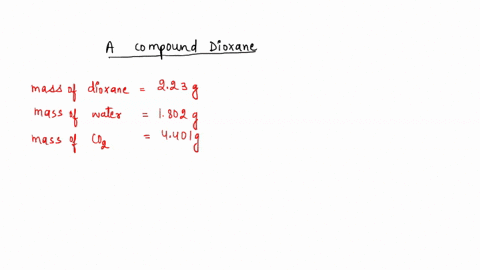 A compound Dioxane
mass of dioxane = 2.23 g
mass of water = 1.802 g
mass of CO2 = 4.401g